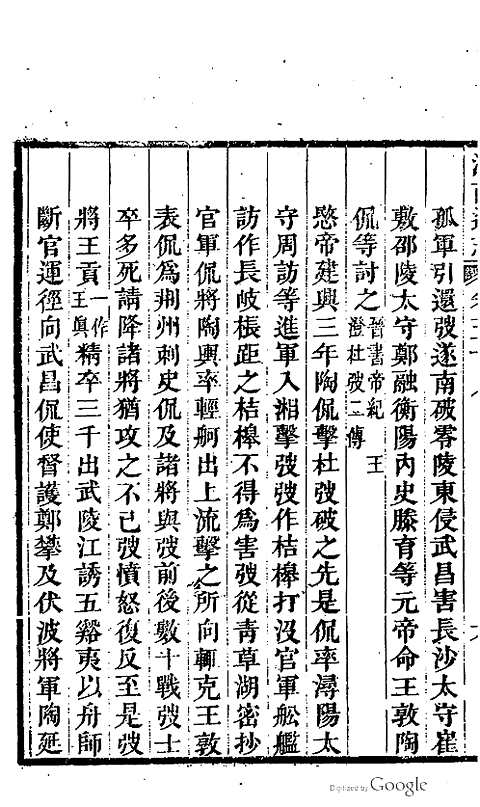 孤軍引還弢遂南破零陵東侵武昌害長沙太守崔
敷邵陵太守鄭融衡陽內史滕育等元帝命王敦陶
侃等討之晉書帝紀王澄杜弢二傳
愍帝建興三年陶侃擊杜弢破之先是侃率潯陽太
守周訪等進軍入湘擊弢弢作桔槔打沒官軍舩艦
訪作長岐棖距之桔槔不得為害弢從青草湖密抄
官軍侃將陶輿率輕舸出上流擊之所向輒克王敦
表侃為荆州刺史侃及諸將與弢前後數十戰弢士
卒多死請降諸將猶攻之不已弢憤怒復反至是弢
將王貢一作王真精卒三千出武陵江誘五谿夷以舟師
斷官運徑向武昌侃使督護鄭攀及伏波將軍陶延
Digitized by Google